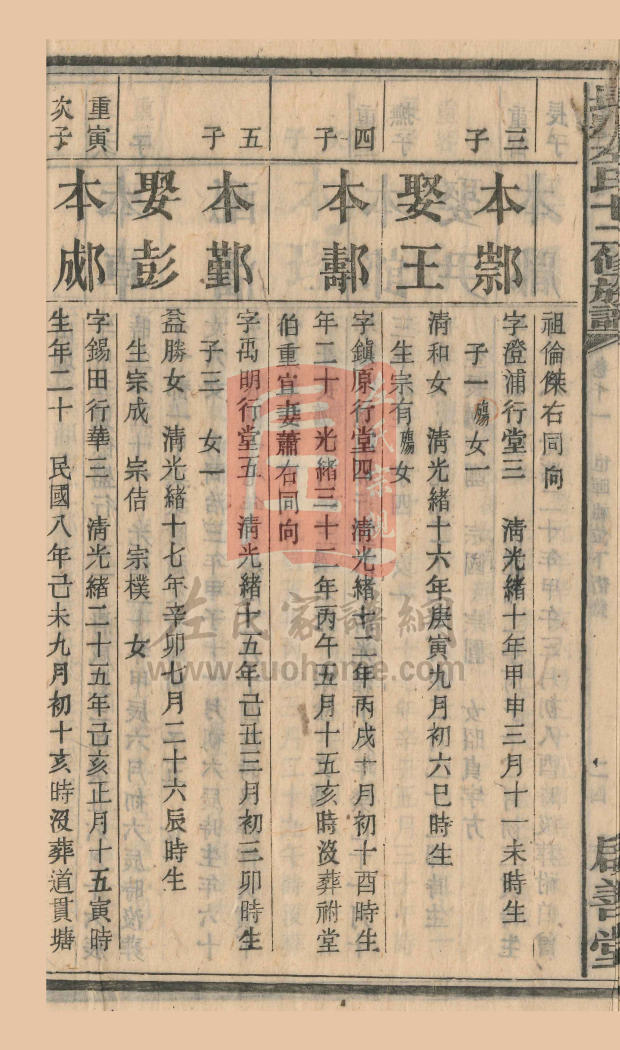 左氏十二修族譜
卷廿一
啟善堂
祖倫傑右同向
三子
本鄂
字澄浦行堂三 清光緒十年甲申三月十一未時生
子一殤女一
娶王
清和女 清光緒十六年庚寅九月初六巳時生
生宗有殤女
四子
本鄢
字鎮原行堂四 清光緒十二年丙戌十月初十酉時生
年二十一光緒三十二年丙午五月十五亥時沒葬祔堂
伯重宜妻蕭右同向
五子
本鄞
字禹明行堂五 清光緒十五年己丑三月初三卯時生
子三 女一
娶彭
益勝女 清光緒十七年辛卯七月二十六辰時生
生宗成 宗佶 宗樸 女
重寅次子
本郕
字錫田行華三 清光緒二十五年己亥正月十五寅時
生年二十 民國八年己未九月初十亥時沒葬道貫塘
左氏家譜網
www.zuohome.com